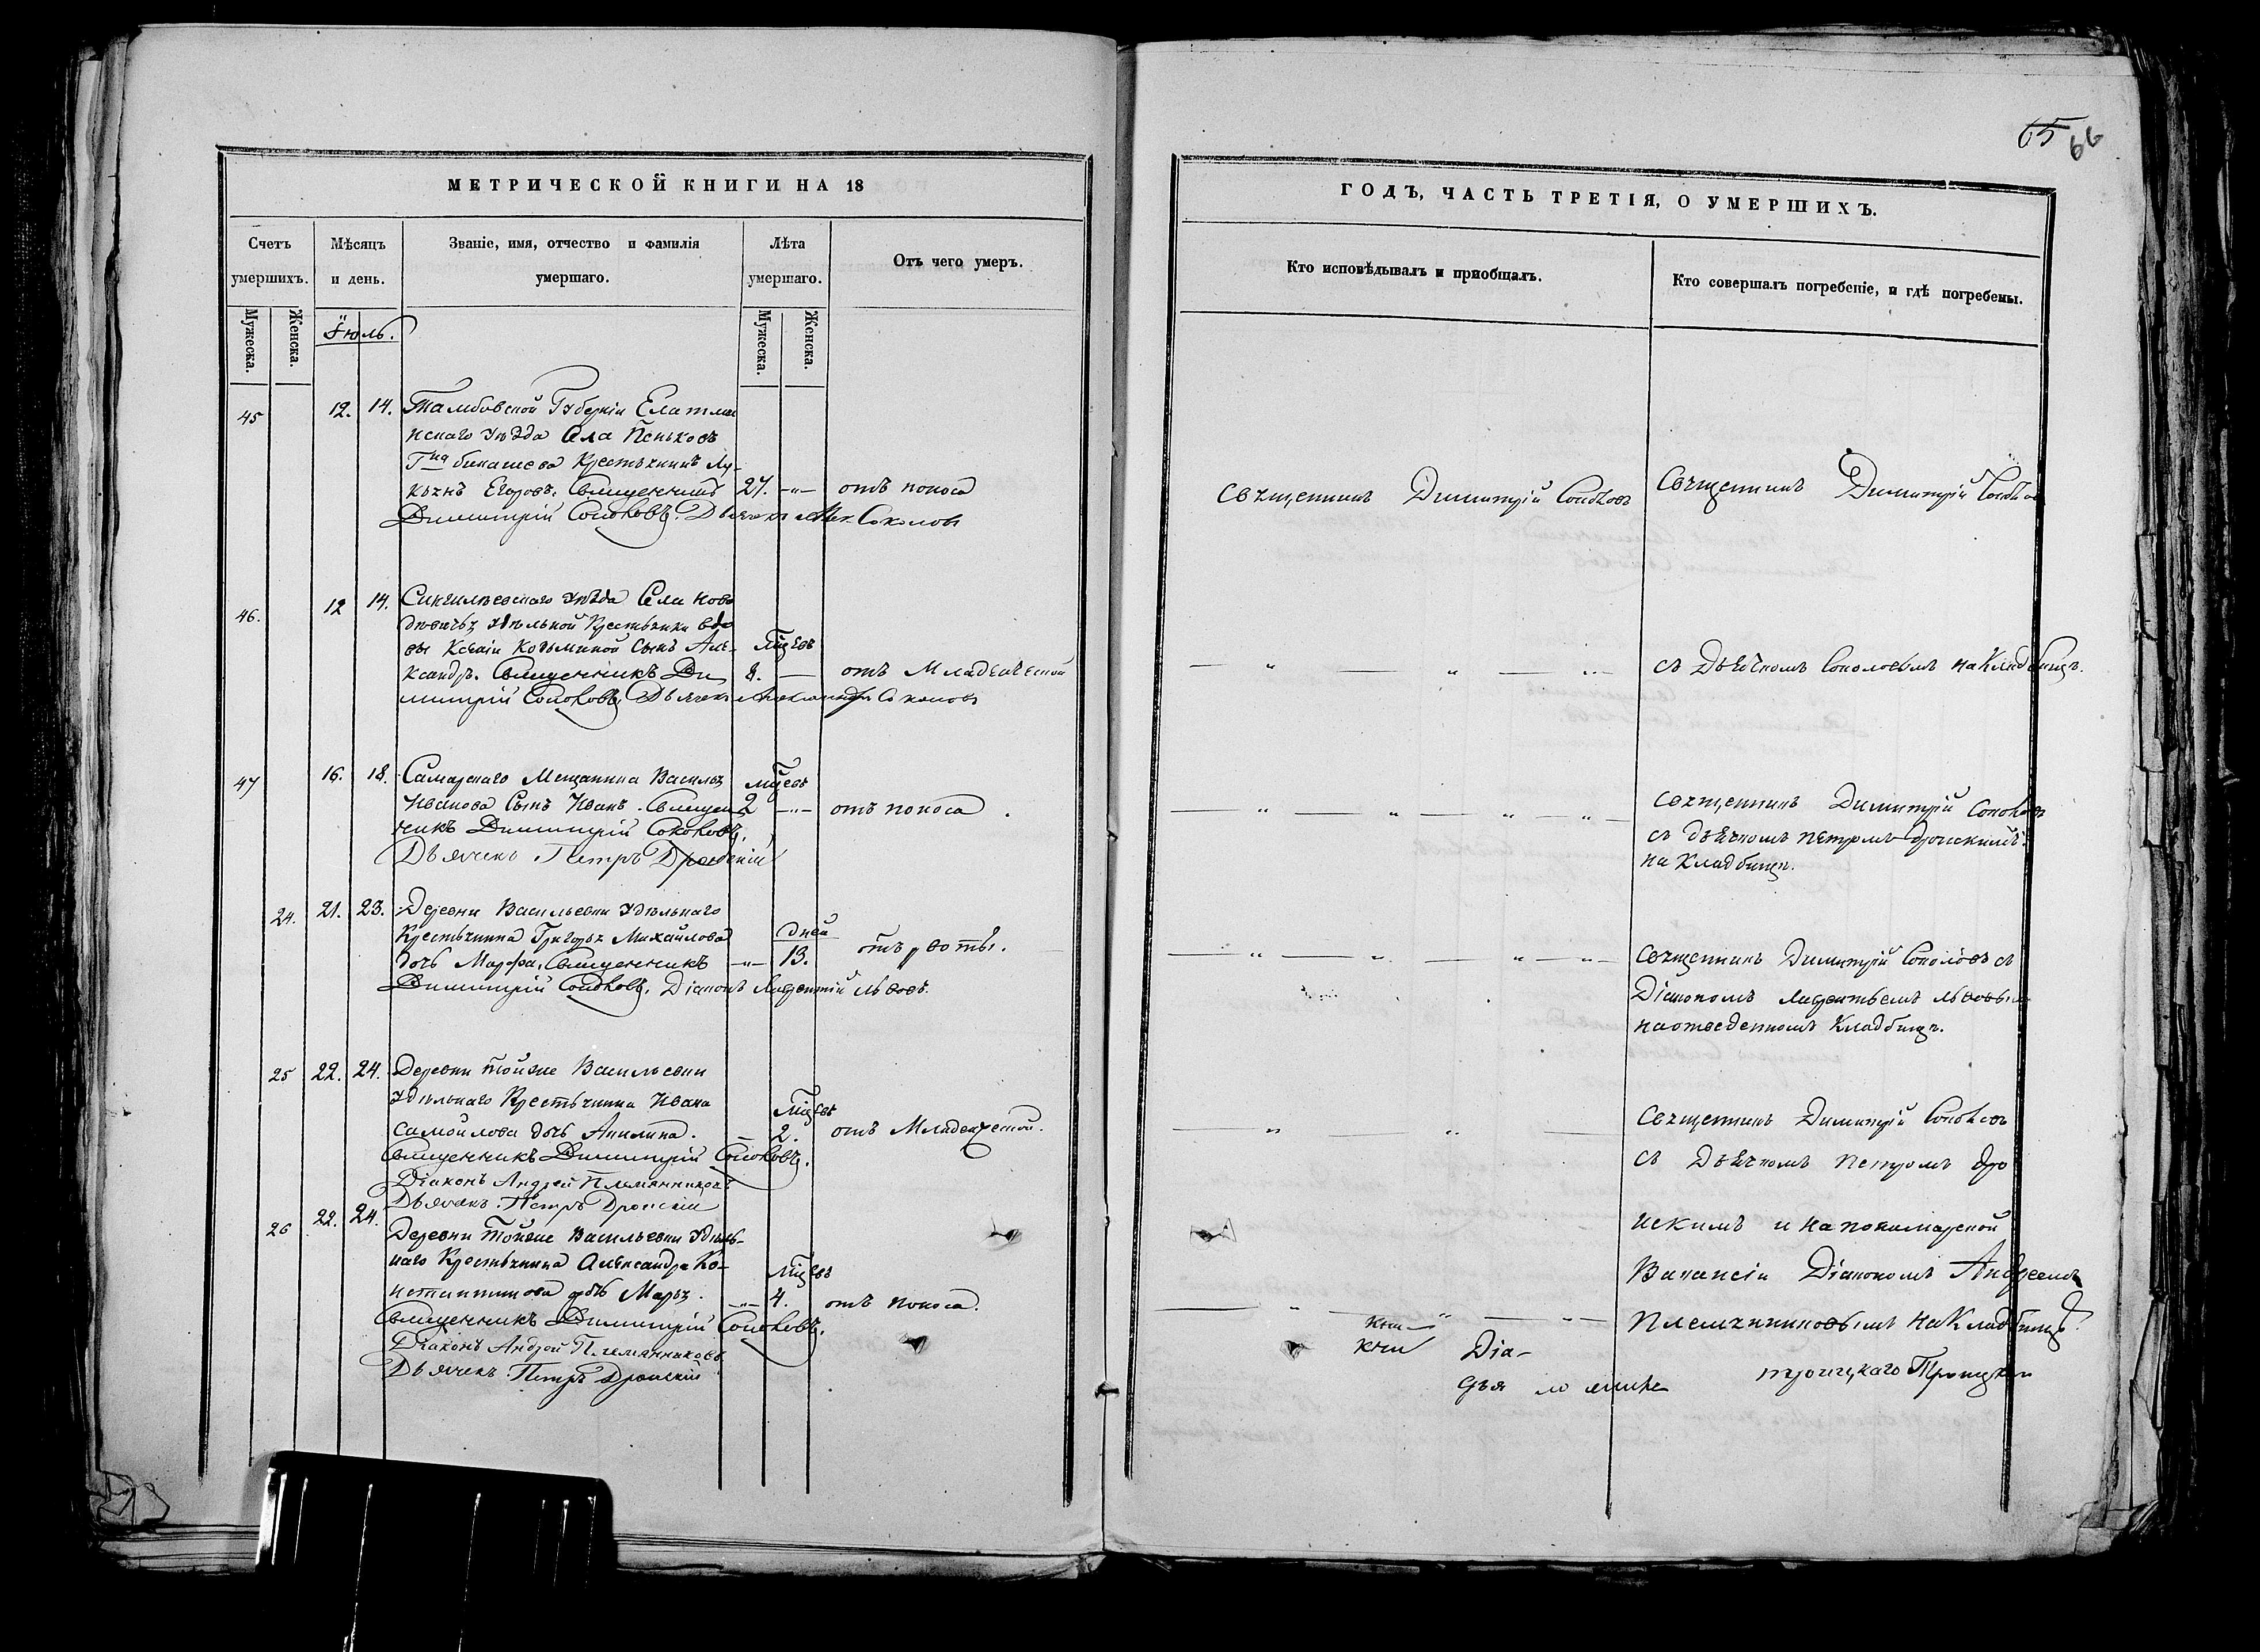 65 66
МЕТРИЧЕСКОЙ КНИГИ НА 18
Счетъ умершихъ.
Мѣсяцъ и день.
Званіе, имя, отчество и фамилія
умершаго.
Лѣта
умершаго.
Отъ чего умеръ.
Мужеска.
Женска.
Мужеска.
Женска.
Іюль.
45 12. 14. Тамбовской Губерніи Елатмин
искаго уѣзда Села Пеньковъ
Гна Крестьянинъ Лу-
кьянъ Егоровъ. Священникъ 27. отъ поноса
Димитрій Соколовъ. Дьячекъ Соколовъ
46. 12 14. Сингилѣевскаго уѣзда Села Ново
дѣвичья удѣльной Крестьянки вдо
вы Ксеніи Козьминой Сынъ Але- мцевъ
ксандръ. Священникъ Ди 8. отъ Младенческой
митрій Соколовъ, Дьячекъ Александръ Соколовъ
47 16. 18. Самарскаго Мещанина Василья мцевъ
Иванова Сынъ Иванъ. Священ 2 отъ поноса
никъ Димитрій Соколовъ.
Дьячекъ Петръ Дронскій
24. 21. 23. Деревни Васильевки Удѣльнаго
Крестьянина Григорья Михайлова дней
дочь Марфа, Священникъ 13. отъ рвоты.
Димитрій Соколовъ, Діаконъ Лаврентій Львовъ.
25 22. 24. Деревни тойже Васильевки
удѣльнаго Крестьянина Ивана мцевъ
Самойлова дочь Акилина. 2. отъ Младенческой.
Священникъ Димитрій Соколовъ.
Діаконъ Андрей Племянниковъ
Дьячекъ Петръ Дронскій
26 22. 24. Деревни Тойже Васильевки Удѣль-
наго Крестьянина Александра Ко- мцевъ
нстантинова дочь Марья. 4. отъ поноса.
Священникъ Димитрій Соколовъ.
Діаконъ Андрей Племянниковъ
Дьячекъ Петръ Дронскій
ГОДЪ, ЧАСТЬ ТРЕТІЯ, О УМЕРШИХЪ.
Кто исповѣдывалъ и пріобщалъ.
Кто совершалъ погребеніе, и гдѣ погребены.
Священникъ Димитрій Соколовъ
Священникъ Димитрій Соколовъ
съ Дьячкомъ Соколовымъ на Кладбищѣ.
Священникъ Димитрій Соколовъ
съ дьячкомъ Петромъ Дронскимъ
на Кладбищѣ.
Священникъ Димитрій Соколовъ съ
Діакономъ Лаврентьемъ Львовымъ
на отведенномъ Кладбищѣ.
Священникъ Димитрій Соколовъ
съ Дьячкомъ Петромъ Дро
нскимъ и на пономарской
Вакансіи Діакономъ Андреемъ
Племянниковымъ на Кладбищѣ
Діа-
троицкаго